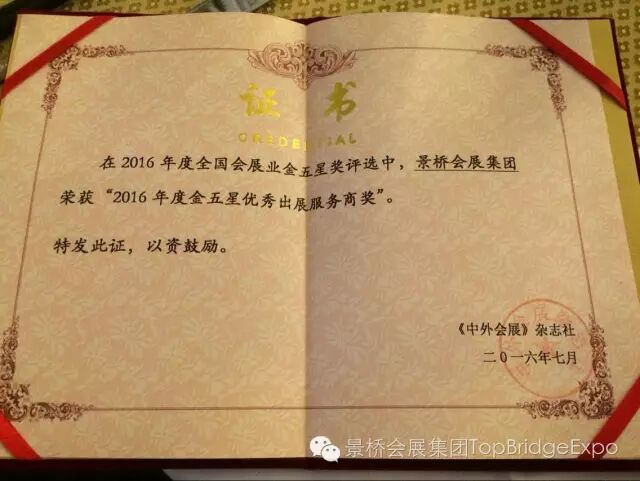 证书
CREDENTIAL
在2016年度全国会展业金五星奖评选中，景桥会展集团
荣获“2016年度金五星优秀出展服务商奖”。
特发此证，以资鼓励。
《中外会展》杂志社
二〇一六年七月
景桥会展集团TopBridgeExpo